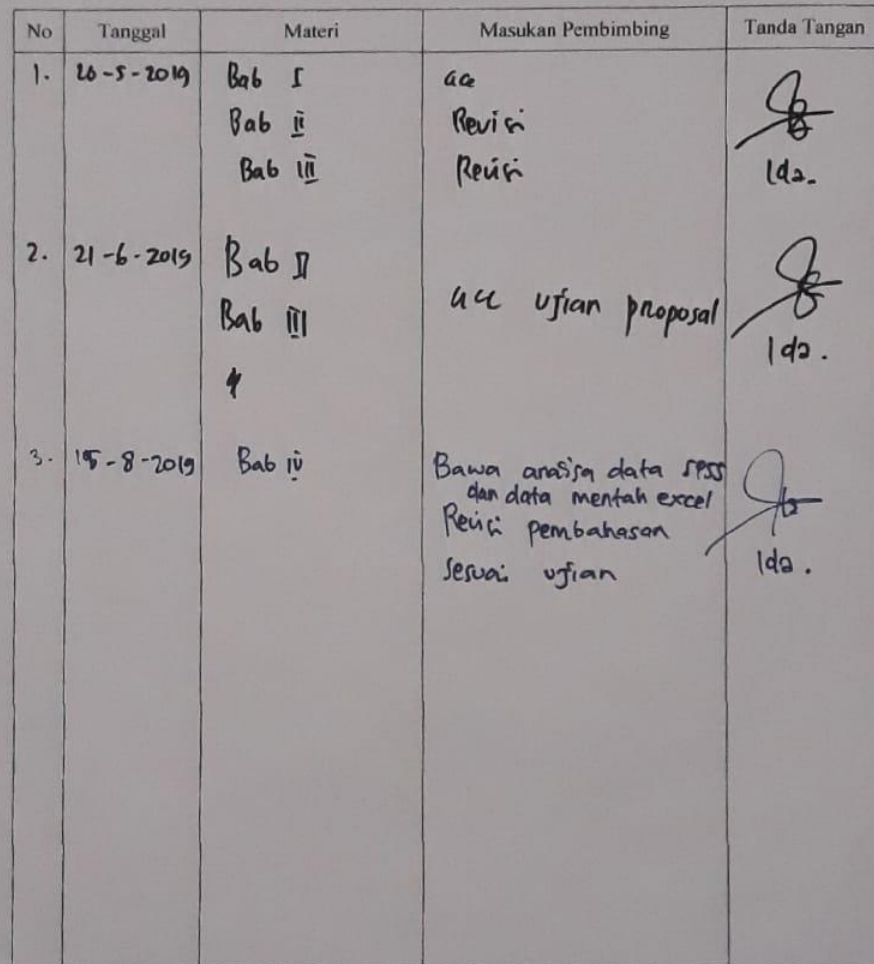 No Tanggal Materi Masukan Pembimbing Tanda Tangan
1. 20-5-2019 Bab I acc
Bab II Revisi
Bab III Revisi Ida.
2. 21-6-2019 Bab II
Bab III acc ujian proposal
Ida.
3. 15-8-2019 Bab IV Bawa anasisa data SPSS
dan data mentah excel
Revisi pembahasan
sesuai ujian Ida.